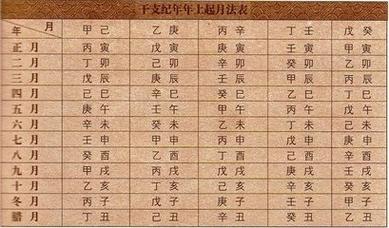 干支纪年年上起月法表
年 月 甲己 乙庚 丙辛 丁壬 戊癸
正月 丙寅 戊寅 庚寅 壬寅 甲寅
二月 丁卯 己卯 辛卯 癸卯 乙卯
三月 戊辰 庚辰 壬辰 甲辰 丙辰
四月 己巳 辛巳 癸巳 乙巳 丁巳
五月 庚午 壬午 甲午 丙午 戊午
六月 辛未 癸未 乙未 丁未 己未
七月 壬申 甲申 丙申 戊申 庚申
八月 癸酉 乙酉 丁酉 己酉 辛酉
九月 甲戌 丙戌 戊戌 庚戌 壬戌
十月 乙亥 丁亥 己亥 辛亥 癸亥
冬月 丙子 戊子 庚子 壬子 甲子
腊月 丁丑 己丑 辛丑 癸丑 乙丑